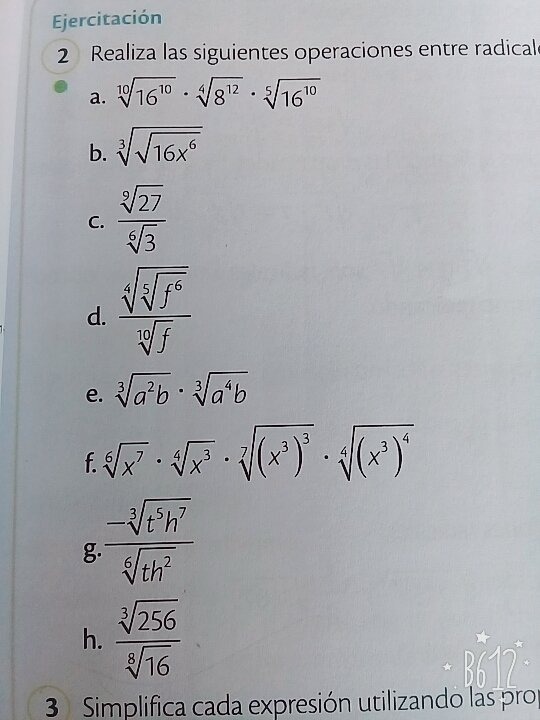 Ejercitación
2 Realiza las siguientes operaciones entre
a. \sqrt[10]{16^{10}} · \sqrt[4]{8^{12}} · \sqrt[5]{16^{10}}
b. \sqrt[3]{\sqrt{16x^6}}
c. \frac{\sqrt[9]{27}}{\sqrt[6]{3}}
d. \frac{\sqrt[4]{\sqrt[5]{f^6}}}{\sqrt[10]{f}}
e. \sqrt[3]{a^2b} · \sqrt[3]{a^4b}
f. \sqrt[6]{x^7} · \sqrt[4]{x^3} · \sqrt[7]{(x^3)^3} · \sqrt[4]{(x^3)^4}
g. \frac{-\sqrt[3]{t^5h^7}}{\sqrt[6]{th^2}}
h. \frac{\sqrt[3]{256}}{\sqrt[8]{16}}
B612
3 Simplifica cada expresión utilizando las